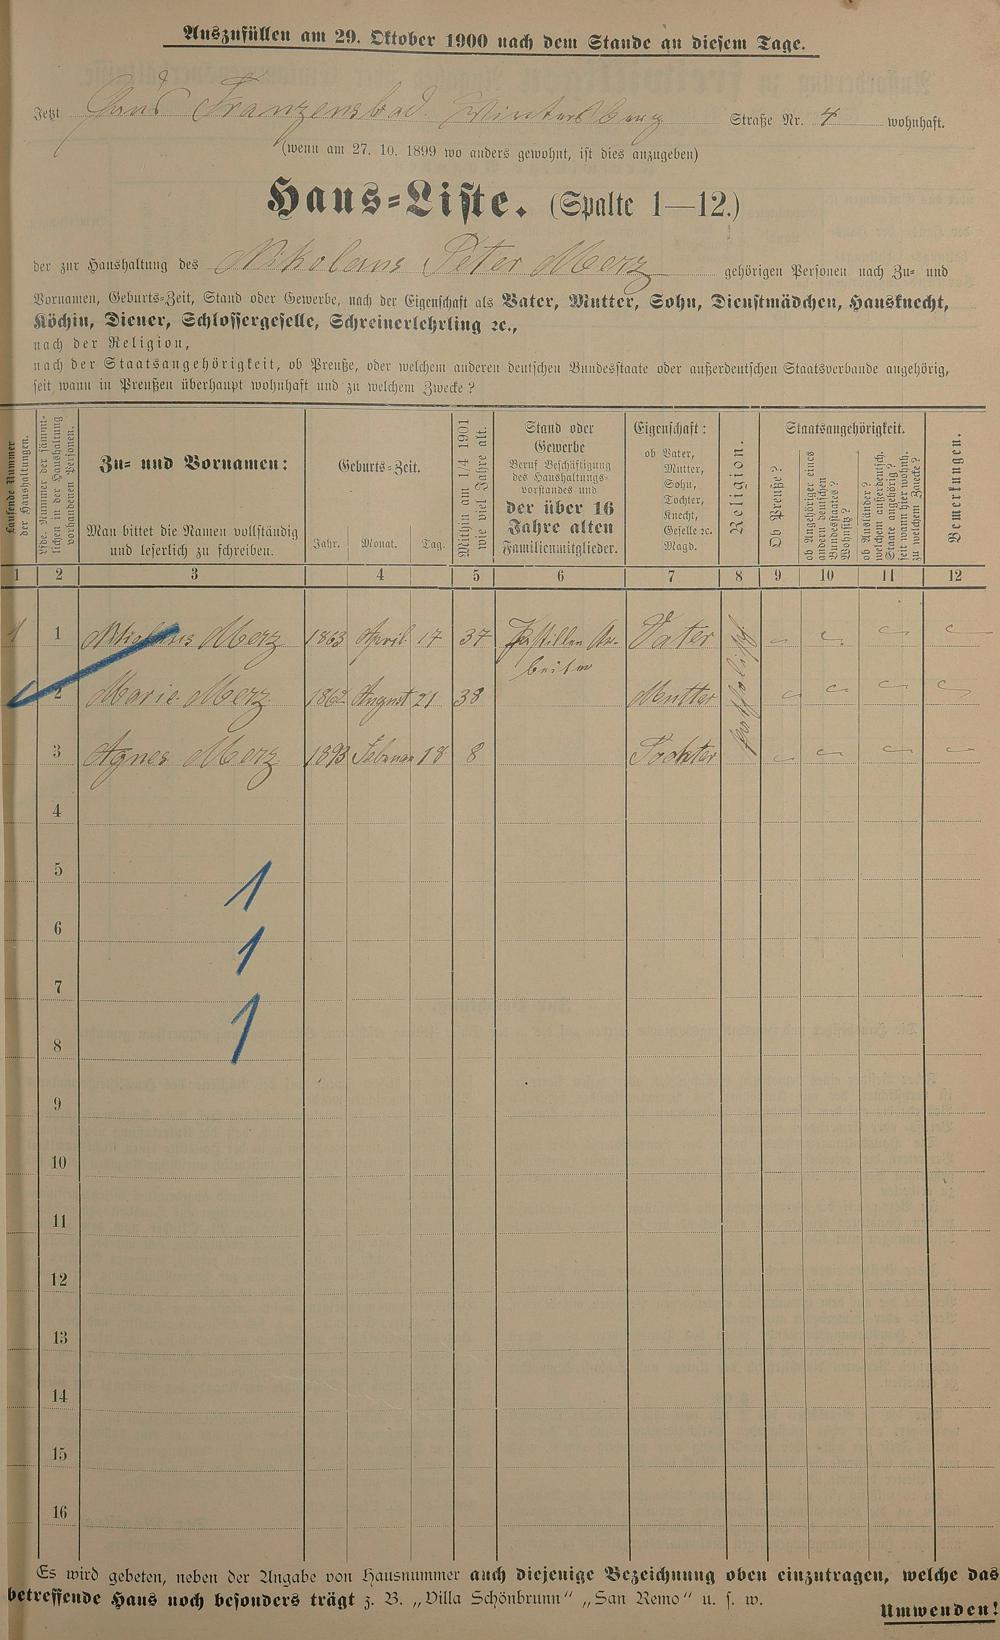 Auszufüllen am 29. Oktober 1900 nach dem Stande an diesem Tage.
Jetzt Haus Franzensbad. Wintersberg Straße Nr. 4 wohnhaft.
(wenn am 27. 10. 1899 wo anders gewohnt, ist dies anzugeben)
Haus=Liste. (Spalte 1—12.)
der zur Haushaltung des Nikolaus Peter Merz gehörigen Personen nach Zu= und
Vornamen, Geburts=Zeit, Stand oder Gewerbe, nach der Eigenschaft als Vater, Mutter, Sohn, Dienstmädchen, Hausknecht,
Köchin, Diener, Schlossergeselle, Schreinerlehrling ꝛc.,
nach der Religion,
nach der Staatsangehörigkeit, ob Preuße, oder welchem anderen deutschen Bundesstaate oder außerdeutschen Staatsverbande angehörig,
seit wann in Preußen überhaupt wohnhaft und zu welchem Zwecke?
Laufende Nummer
der Haushaltungen.
Lfde. Nummer der sämmt-
lichen in der Haushaltung
vorhandenen Personen.
Zu= und Vornamen:
Man bittet die Namen vollständig
und leserlich zu schreiben.
Geburts=Zeit.
Jahr. Monat. Tag.
Mithin am 1/4 1901
wie viel Jahre alt.
Stand oder
Gewerbe
Beruf Beschäftigung
des Haushaltungs-
vorstandes und
der über 16
Jahre alten
Familienmitglieder.
Eigenschaft:
ob Vater,
Mutter,
Sohn,
Tochter,
Knecht,
Geselle ꝛc.
Magd.
Religion.
Staatsangehörigkeit.
Ob Preuße?
ob Angehöriger eines
andern deutschen
Bundesstaates?
Wohnsitz?
ob Ausländer?
welchem außerdeutsch.
Staate angehörig?
seit wann hier wohnh.
zu welchem Zwecke?
Bemerkungen.
1 2 3 4 5 6 7 8 9 10 11 12
1 1 Nikolaus Merz 1863 April 17 37 Pastillen Ar-
beiter Vater katholisch
2 Marie Merz 1862 August 21 38 Mutter
3 Agnes Merz 1893 Februar 18 8 Tochter
4
5
1
6
1
7
1
8
9
10
11
12
13
14
15
16
Es wird gebeten, neben der Angabe von Hausnummer auch diejenige Bezeichnung oben einzutragen, welche das
betreffende Haus noch besonders trägt z. B. „Villa Schönbrunn" „San Remo" u. s. w.
Umwenden!